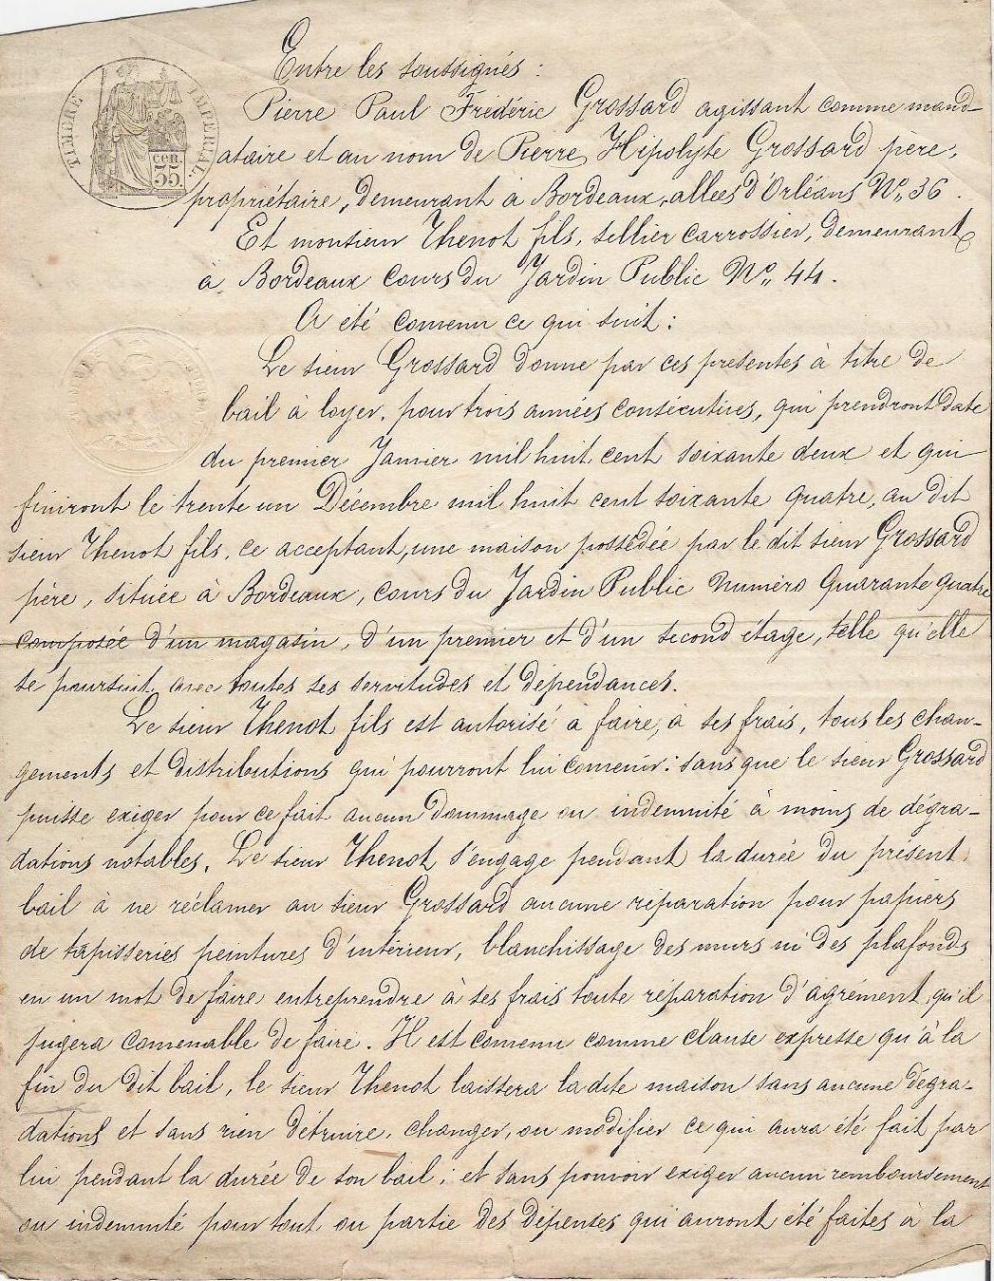 Entre les soussignés :
TIMBRE IMPÉRIAL.
cen.
35
Pierre Paul Frédéric Grossard agissant comme mand-
ataire et au nom de Pierre Hipolyte Grossard père,
propriétaire, demeurant à Bordeaux, allées d'Orléans N° 36.
Et monsieur Thenot fils, sellier carrossier, demeurant
a Bordeaux cours du Jardin Public N° 44.
A été convenu ce qui suit :
Le sieur Grossard donne par ces presentes à titre de
bail à loyer, pour trois années consécutives, qui prendront date
du premier Janvier mil huit cent soixante deux et qui
finiront le trente un Décembre mil huit cent soixante quatre, au dit
sieur Thenot fils, ce acceptant, une maison possédée par le dit sieur Grossard
père, située à Bordeaux, cours du Jardin Public numéro Quarante quatre
composée d'un magasin, d'un premier et d'un second étage, telle qu'elle
se poursuit, avec toutes ses servitudes et dépendances.
Le sieur Thenot fils est autorisé à faire, à ses frais, tous les chan-
gements et distributions qui pourront lui convenir : sans que le sieur Grossard
puisse exiger pour ce fait aucun dommage ou indemnité à moins de dégra-
dations notables. Le sieur Thenot s'engage pendant la durée du présent
bail à ne réclamer au sieur Grossard aucune réparation pour papiers
de tapisseries peintures d'intérieur, blanchissage des murs ni des plafonds
en un mot de faire entreprendre à ses frais toute réparation d'agrément, qu'il
jugera convenable de faire. Il est convenu comme clause expresse qu'à la
fin du dit bail, le sieur Thenot laissera la dite maison sans aucune dégra-
dations et sans rien détruire, changer, ou modifier ce qui aura été fait par
lui pendant la durée de son bail ; et sans pouvoir exiger aucun remboursement
ou indemnité pour tout ou partie des dépenses qui auront été faites à la